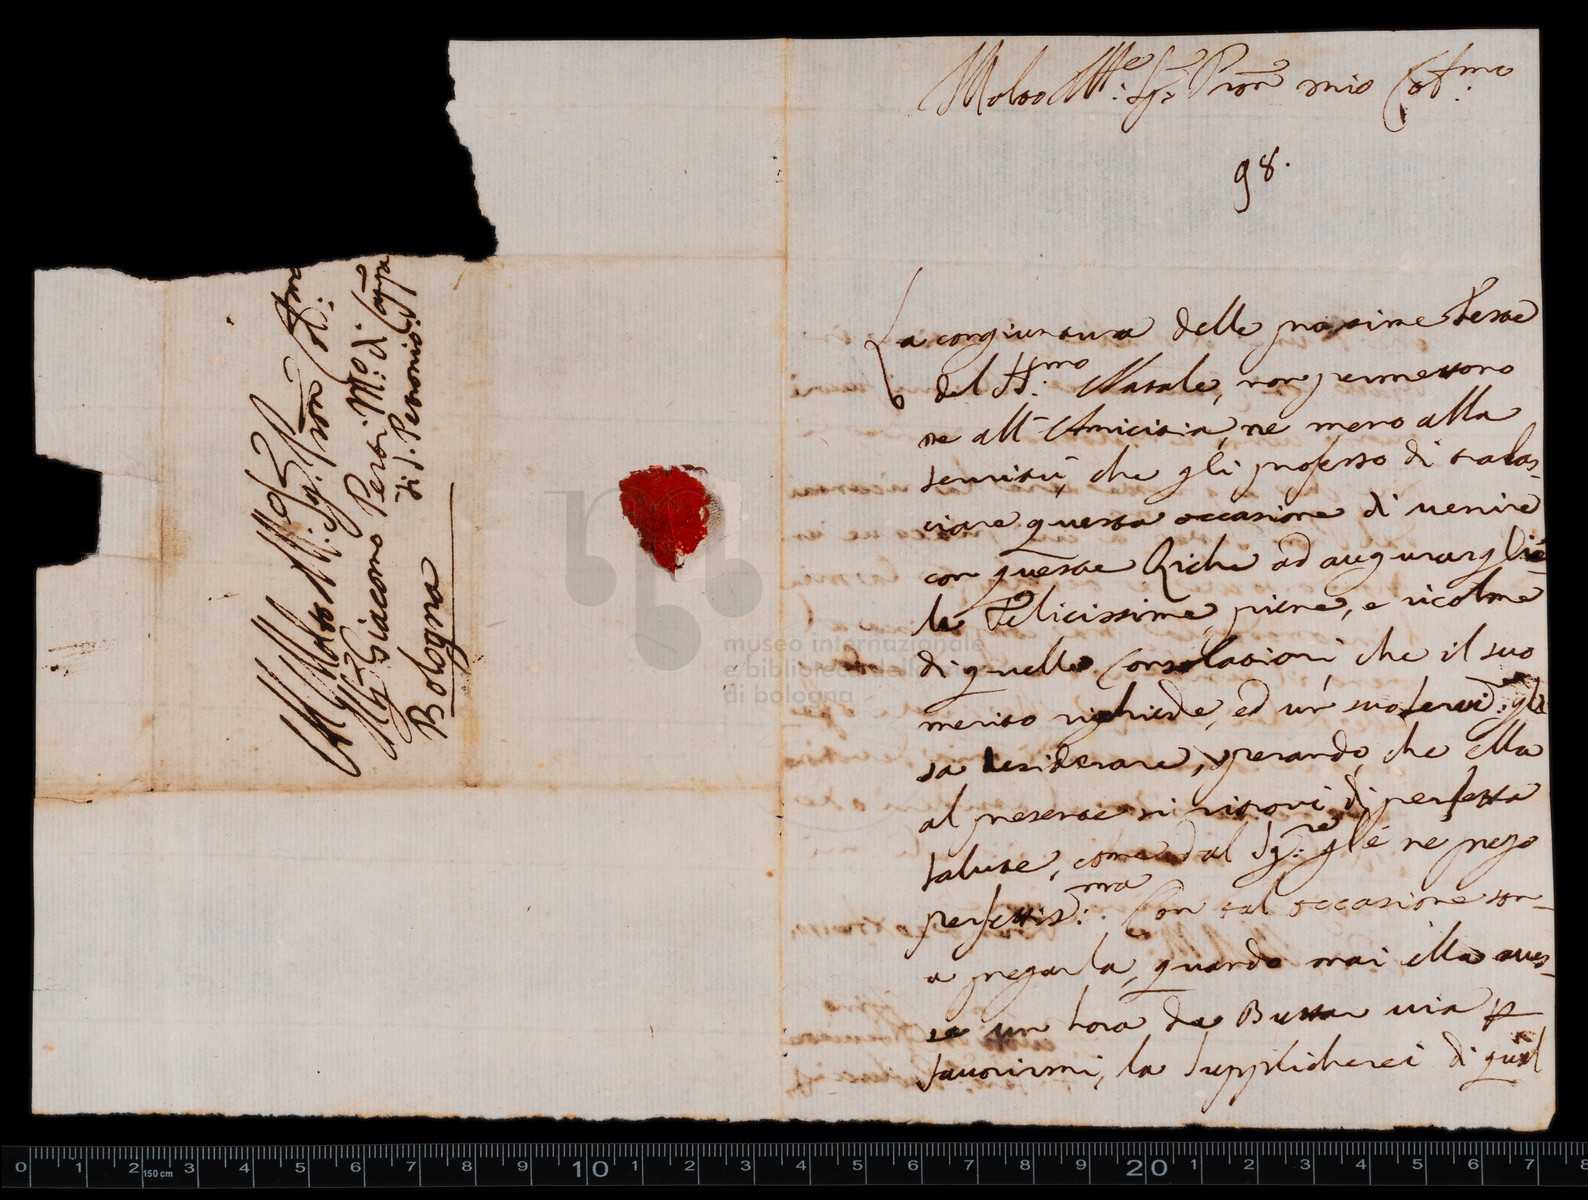 Molto Ill:re Sig:r Pron mio Col:mo
98.
La congiuntura delle prossime Feste
del SS.mo Natale, non permettono
ne all' Amicitia, ne meno alla
seruitù, che gli professo di tralas-
ciare questa occasione di uenire
con queste Righe ad augurargliè
le Felicissime, piene, e ricolme
di quelle Consolationi, che il suo
merito richiede, ed un' suo seruid:re gli
sa desiderare, sperando, che ella
al presente si ritroui di perfetta
salute, come dal Sig:re gl'é ne prego
perfettiss:ma. Con tal occasione son-
a pregarla, quando mai ella aues-
se un hora da Buttar uia p
fauorirmi, la supplicherei di quel
Al Molto Ill:re Sig:r Pron Col:mo
Il Sig:r Giacomo Perti M:ro di Cappa
di S. Petronio
Bologna
museo internazionale
e biblioteca della
di bologna
0 1 2 3 4 5 6 7 8 9 10 1 2 3 4 5 6 7 8 9 20 1 2 3 4 5 6 7 8
150 cm